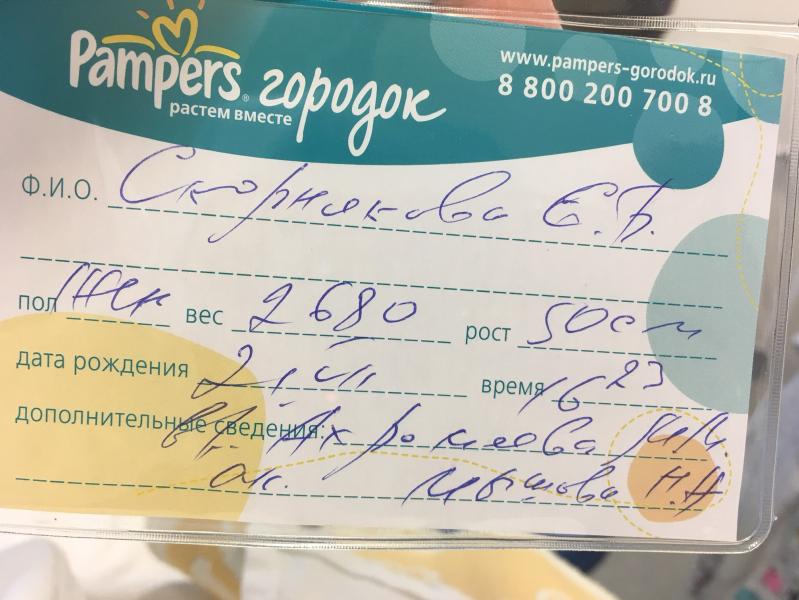 Pampers® городок
растем вместе
www.pampers-gorodok.ru
8 800 200 700 8
Ф.И.О. Скорнякова Е.В.
пол Жен вес 2680 рост 50 см
дата рождения 2. III время 16 23
дополнительные сведения: вр.
ак. Мышова Н.Н